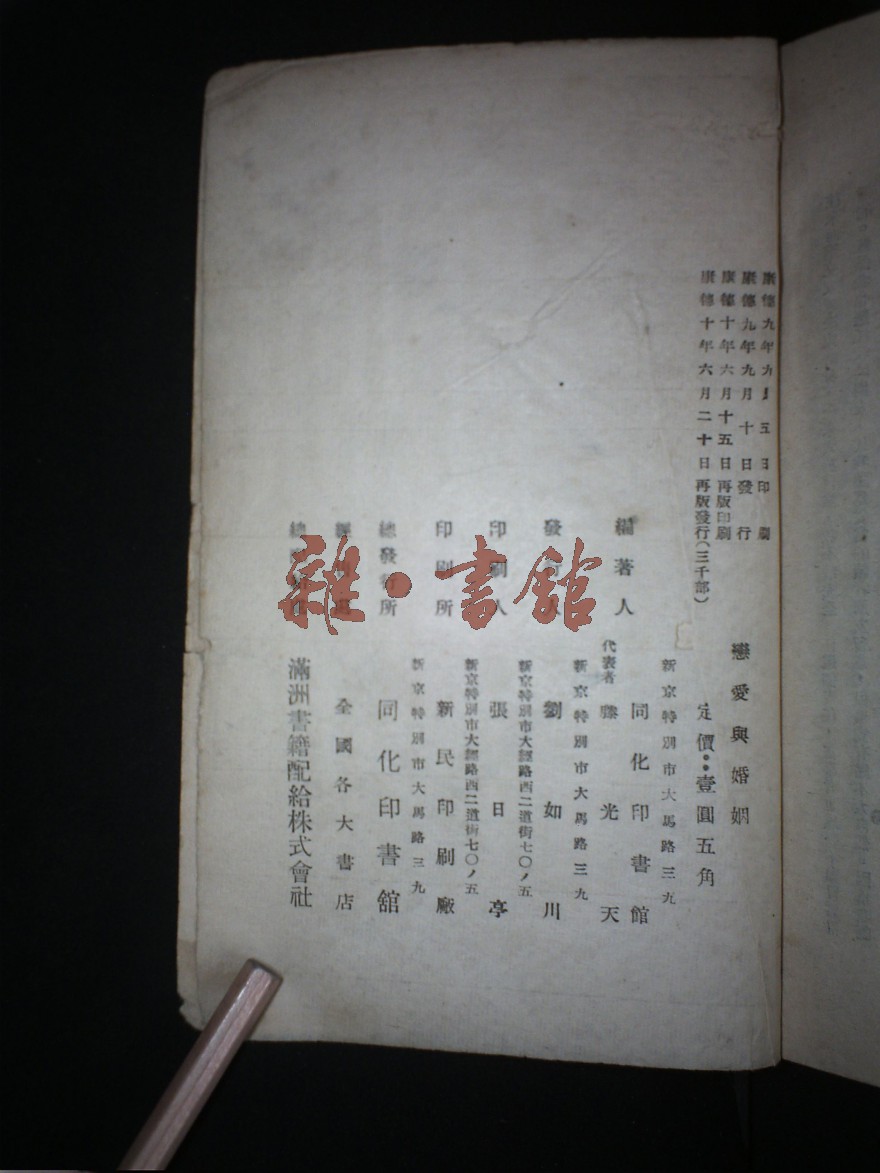 康德九年九月五日印刷
康德九年九月十日發行
康德十年六月十五日再版印刷
康德十年六月二十日再版發行(三千部)
戀愛與婚姻
定價：壹圓五角
新京特別市大馬路三九
編著人 同化印書館
代表者 光天
新京特別市大馬路三九
發 人 劉如川
新京特別市大經路西二道街七〇ノ五
印刷人 張日亭
新京特別市大經路西二道街七〇ノ五
印刷所 新民印刷廠
新京特別市大馬路三九
總發行所 同化印書館
全國各大書店
滿洲書籍配給株式會社
雜·書館